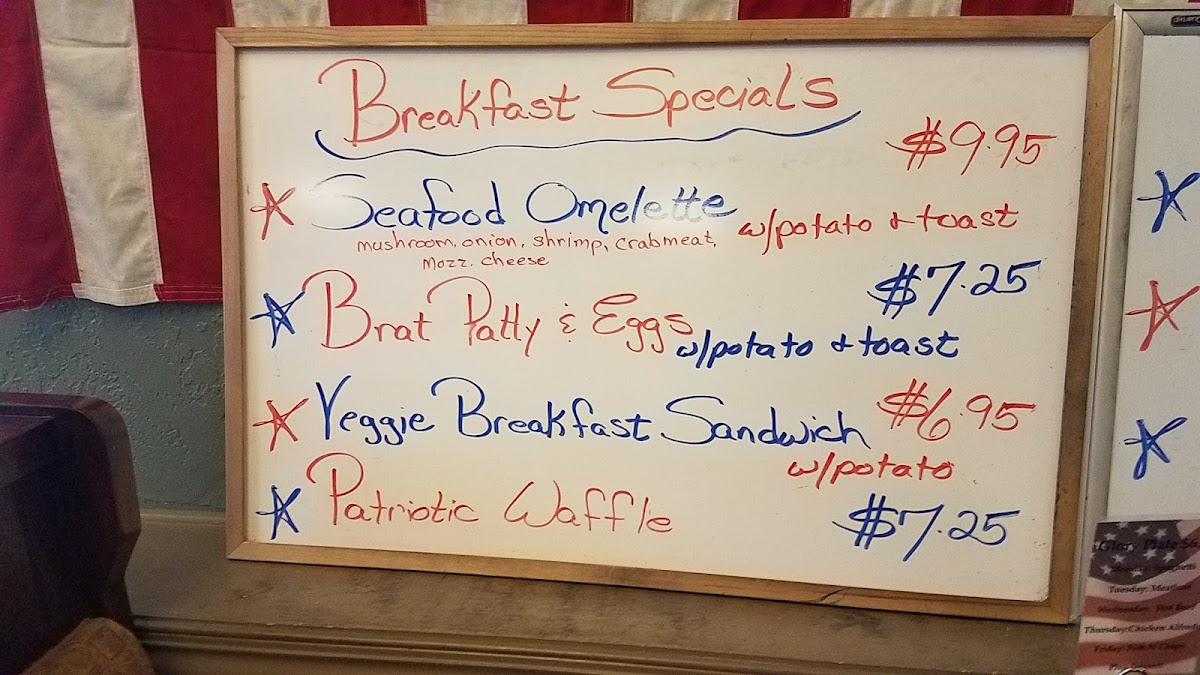 Breakfast Specials
$9.95
Seafood Omelette w/potato & toast
mushroom, onion, shrimp, crabmeat,
Mozz. cheese
$7.25
Brat Patty & Eggs w/potato & toast
Veggie Breakfast Sandwich $6.95
w/potato
Patriotic Waffle $7.25
Glory Plate $6.
Tuesday: Meatloaf
Wednesday:
Thursday:Chicken Alfredo
Friday: Fish N Chips